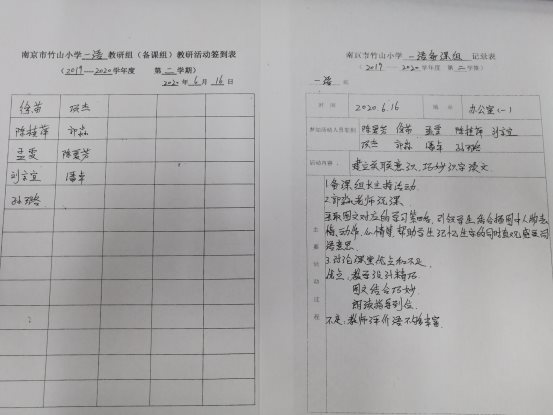 南京市竹山小学一语教研组（备课组）教研活动签到表
（2019---2020学年度 第二学期）
2020年6月16日
徐苗 仄杰
陈桂萍 郭淼
孟雯 陈夏芳
刘言宜 潘卓
孙璐
南京市竹山小学一语备课组记录表
（2019---2020学年度 第二学期）
一语 组
时间 2020.6.16 地点 办公室（一）
参加活动人员签到 陈夏芳 徐苗 孟雯 陈桂萍 刘言宜
郭淼 潘卓 孙璐
活动内容： 建立关联意识,巧妙识字读文
主要活动过程
1.备课组长主持活动.
2.郭淼老师说课.
采取图文对应的学习策略,引领学生结合插图中人物表
情、动作、心情等,帮助学生记忆生字的同时直观感受词
语意思.
3.讨论课堂优点和不足.
优点:教学设计精巧
图文结合巧妙.
朗读指导到位.
不足:教师评价语不够丰富.